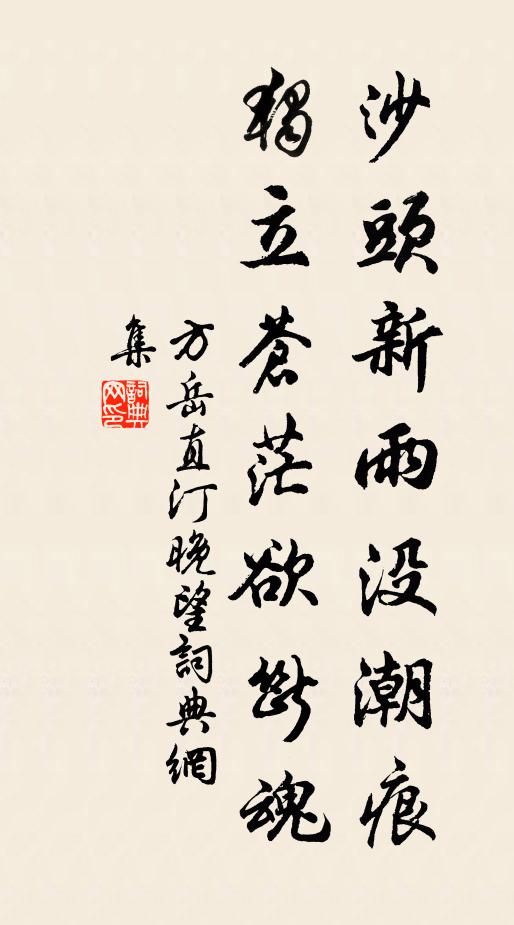 沙頭新雨没潮痕
獨立蒼茫欲斷魂
方岳直汀晚望詞典網
集
詞典
网印